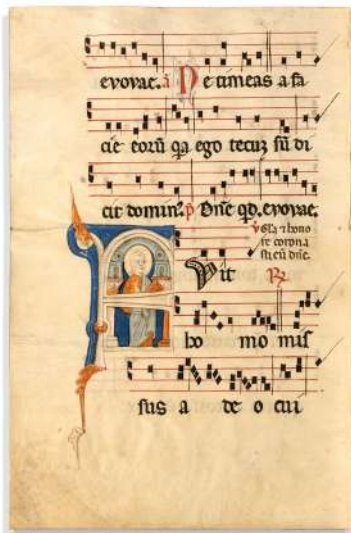 evovae. a Ne timeas a fa
cie eorū qa ego tecuz sū di
cit domin⁹. p̄ Dn̄e qd. evovae.
v̄ Gl̄a ⁊ hono
re corona
sti eū dn̄e.
F Vit R̄
ho mo mis
sus a de o cui